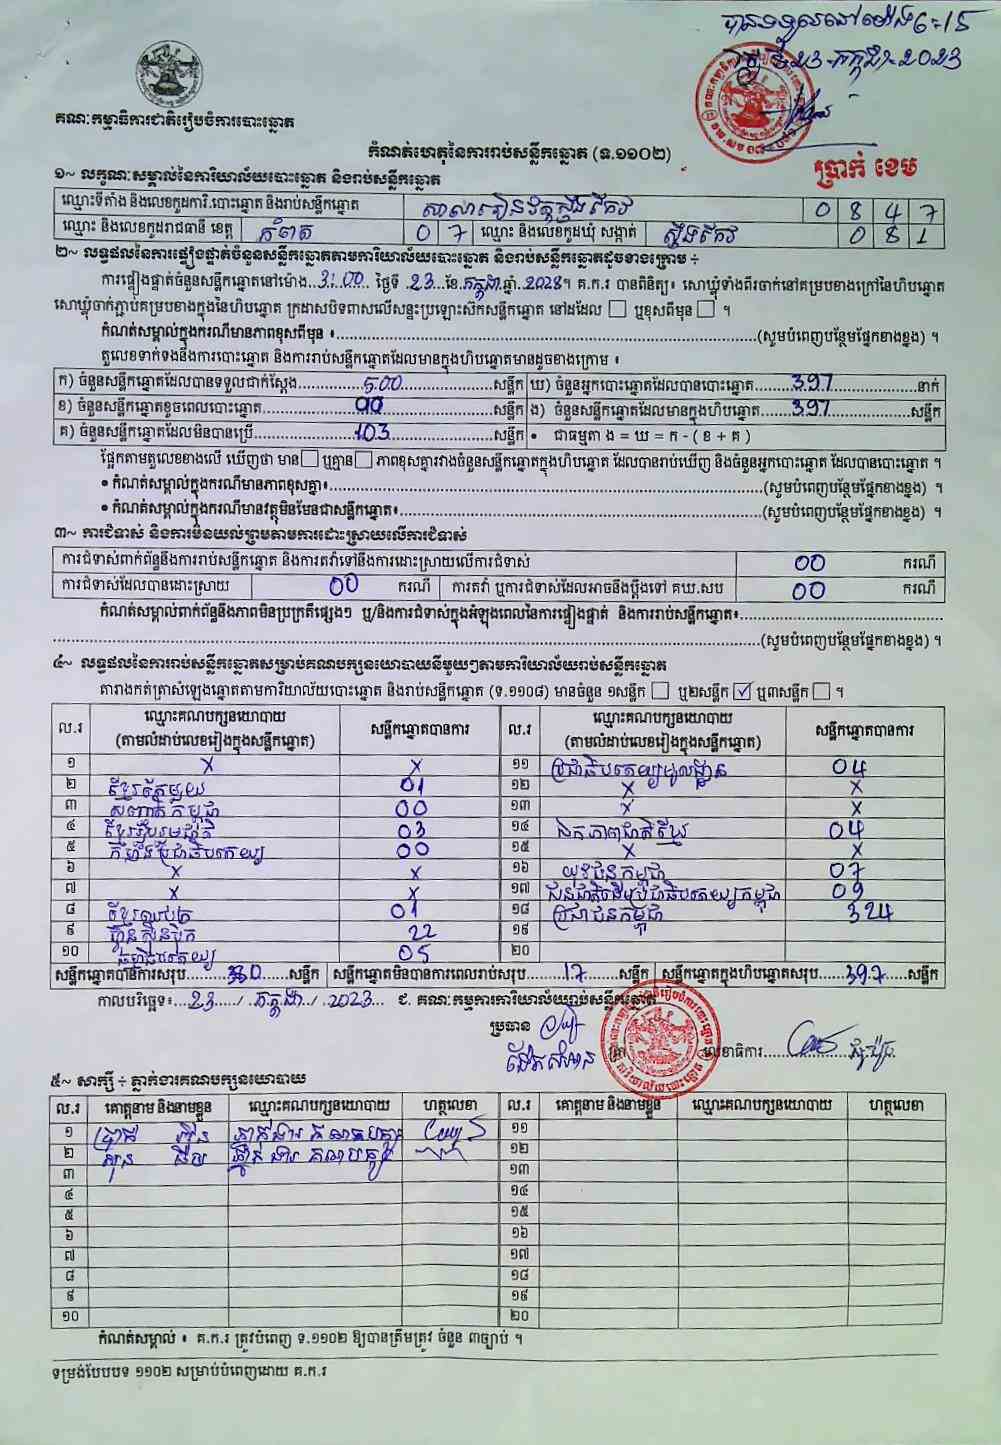 បានទទួលនៅម៉ោង 6:15
ថ្ងៃទី23-កក្កដា-2023
គណៈកម្មាធិការជាតិរៀបចំការបោះឆ្នោត
ប្រាក់ ខេម
កំណត់ហេតុនៃការរាប់សន្លឹកឆ្នោត (ទ.១១០២)
១~ លក្ខណៈសម្គាល់នៃការិយាល័យបោះឆ្នោត និងរាប់សន្លឹកឆ្នោត
ឈ្មោះទីតាំង និងលេខកូដការិ.បោះឆ្នោត និងរាប់សន្លឹកឆ្នោត សាលារៀនវត្តស្ទឹងកែវ 0 8 4 7
ឈ្មោះ និងលេខកូដរាជធានី ខេត្ត កំពត 0 7 ឈ្មោះ និងលេខកូដឃុំ សង្កាត់ ស្ទឹងកែវ 0 8 1
២~ លទ្ធផលនៃការផ្ទៀងផ្ទាត់ចំនួនសន្លឹកឆ្នោតតាមការិយាល័យបោះឆ្នោត និងរាប់សន្លឹកឆ្នោតដូចខាងក្រោម ÷
ការផ្ទៀងផ្ទាត់ចំនួនសន្លឹកឆ្នោតនៅម៉ោង 3:00 ថ្ងៃទី 23 ខែ កក្កដា ឆ្នាំ 2023។ គ.ក.រ បានពិនិត្យ៖ សោឃ្លុំទាំងពីរចាក់នៅគម្របខាងក្រៅនៃហិបឆ្នោត
សោឃ្លុំចាក់ភ្ជាប់គម្របខាងក្នុងនៃហិបឆ្នោត ក្រដាសបិទពាសលើសន្ទះប្រឡោះស៊កសន្លឹកឆ្នោត នៅដដែល ☐ ឬខុសពីមុន ☐ ។
កំណត់សម្គាល់ក្នុងករណីមានភាពខុសពីមុន ៖ (សូមបំពេញបន្ថែមផ្នែកខាងខ្នង) ។
តួលេខទាក់ទងនឹងការបោះឆ្នោត និងការរាប់សន្លឹកឆ្នោតដែលមានក្នុងហិបឆ្នោតមានដូចខាងក្រោម ៖
ក) ចំនួនសន្លឹកឆ្នោតដែលបានទទួលជាក់ស្តែង 500 សន្លឹក ឃ) ចំនួនអ្នកបោះឆ្នោតដែលបានបោះឆ្នោត 397 នាក់
ខ) ចំនួនសន្លឹកឆ្នោតខូចពេលបោះឆ្នោត 00 សន្លឹក ង) ចំនួនសន្លឹកឆ្នោតដែលមានក្នុងហិបឆ្នោត 397 សន្លឹក
គ) ចំនួនសន្លឹកឆ្នោតដែលមិនបានប្រើ 103 សន្លឹក • ជាធម្មតា ង = ឃ = ក - ( ខ + គ )
ផ្អែកតាមតួលេខខាងលើ ឃើញថា មាន ☐ ឬគ្មាន ☐ ភាពខុសគ្នារវាងចំនួនសន្លឹកឆ្នោតក្នុងហិបឆ្នោត ដែលបានរាប់ឃើញ និងចំនួនអ្នកបោះឆ្នោត ដែលបានបោះឆ្នោត ។
• កំណត់សម្គាល់ក្នុងករណីមានភាពខុសគ្នា៖ (សូមបំពេញបន្ថែមផ្នែកខាងខ្នង) ។
• កំណត់សម្គាល់ក្នុងករណីមានវត្ថុមិនមែនជាសន្លឹកឆ្នោត៖ (សូមបំពេញបន្ថែមផ្នែកខាងខ្នង) ។
៣~ ការជំទាស់ និងការមិនយល់ព្រមតាមការដោះស្រាយលើការជំទាស់
ការជំទាស់ពាក់ព័ន្ធនឹងការរាប់សន្លឹកឆ្នោត និងការតវ៉ាទៅនឹងការដោះស្រាយលើការជំទាស់ 00 ករណី
ការជំទាស់ដែលបានដោះស្រាយ 00 ករណី ការតវ៉ា ឬការជំទាស់ដែលអាចនឹងប្តឹងទៅ គឃ.សប 00 ករណី
កំណត់សម្គាល់ពាក់ព័ន្ធនឹងភាពមិនប្រក្រតីផ្សេងៗ ឬ/និងការជំទាស់ក្នុងអំឡុងពេលនៃការផ្ទៀងផ្ទាត់ និងការរាប់សន្លឹកឆ្នោត៖
(សូមបំពេញបន្ថែមផ្នែកខាងខ្នង) ។
៤~ លទ្ធផលនៃការរាប់សន្លឹកឆ្នោតសម្រាប់គណបក្សនយោបាយនីមួយៗតាមការិយាល័យរាប់សន្លឹកឆ្នោត
តារាងកត់ត្រាសំឡេងឆ្នោតតាមការិយាល័យបោះឆ្នោត និងរាប់សន្លឹកឆ្នោត (ទ.១១០៨) មានចំនួន ១សន្លឹក ☐ ឬ២សន្លឹក ☑ ឬ៣សន្លឹក ☐ ។
ល.រ ឈ្មោះគណបក្សនយោបាយ (តាមលំដាប់លេខរៀងក្នុងសន្លឹកឆ្នោត) សន្លឹកឆ្នោតបានការ ល.រ ឈ្មោះគណបក្សនយោបាយ (តាមលំដាប់លេខរៀងក្នុងសន្លឹកឆ្នោត) សន្លឹកឆ្នោតបានការ
១ x x ១១ ប្រជាធិបតេយ្យមូលដ្ឋាន 04
២ ខ្មែរតែមួយ 01 ១២ x x
៣ សញ្ជាតិកម្ពុជា 00 ១៣ x x
៤ ខ្មែររួបរួមជាតិ 03 ១៤ ឯកភាពជាតិខ្មែរ 04
៥ កម្លាំងប្រជាធិបតេយ្យ 00 ១៥ x x
៦ x x ១៦ យុវជនកម្ពុជា 07
៧ x x ១៧ ជនជាតិដើមប្រជាធិបតេយ្យកម្ពុជា 09
៨ ខ្មែរឈប់ក្រ 01 ១៨ ប្រជាជនកម្ពុជា 324
៩ ហ៊្វុនស៊ិនប៉ិច 22 ១៩
១០ ធម្មាធិបតេយ្យ 05 ២០
សន្លឹកឆ្នោតបានការសរុប 380 សន្លឹក សន្លឹកឆ្នោតមិនបានការពេលរាប់សរុប 17 សន្លឹក សន្លឹកឆ្នោតក្នុងហិបឆ្នោតសរុប 397 សន្លឹក
កាលបរិច្ឆេទ៖ 23 / កក្កដា / 2023 ជ. គណៈកម្មការការិយាល័យរាប់សន្លឹកឆ្នោត
ប្រធាន លេខាធិការ
៥~ សាក្សី ÷ ភ្នាក់ងារគណបក្សនយោបាយ
ល.រ គោត្តនាម និងនាមខ្លួន ឈ្មោះគណបក្សនយោបាយ ហត្ថលេខា ល.រ គោត្តនាម និងនាមខ្លួន ឈ្មោះគណបក្សនយោបាយ ហត្ថលេខា
១ ភ្នាក់ងារគណបក្ស ១១
២ ភ្នាក់ងារគណបក្ស ១២
៣ ១៣
៤ ១៤
៥ ១៥
៦ ១៦
៧ ១៧
៨ ១៨
៩ ១៩
១០ ២០
កំណត់សម្គាល់ ៖ គ.ក.រ ត្រូវបំពេញ ទ.១១០២ ឱ្យបានត្រឹមត្រូវ ចំនួន ៣ច្បាប់ ។
ទម្រង់បែបបទ ១១០២ សម្រាប់បំពេញដោយ គ.ក.រ